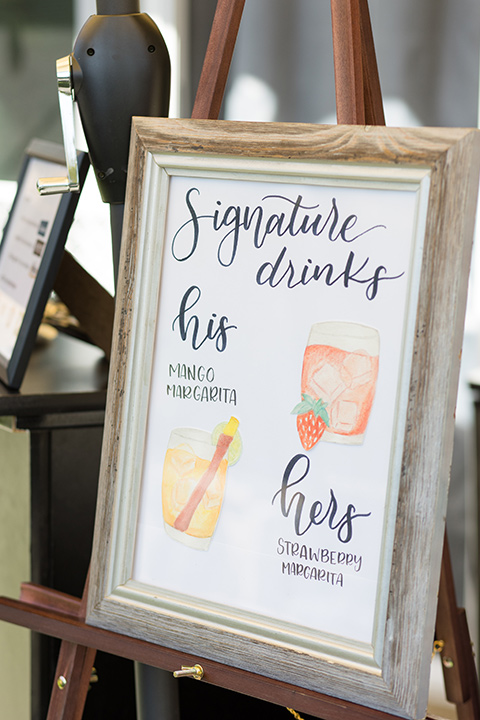 Signature
drinks
his
MANGO
MARGARITA
hers
STRAWBERRY
MARGARITA